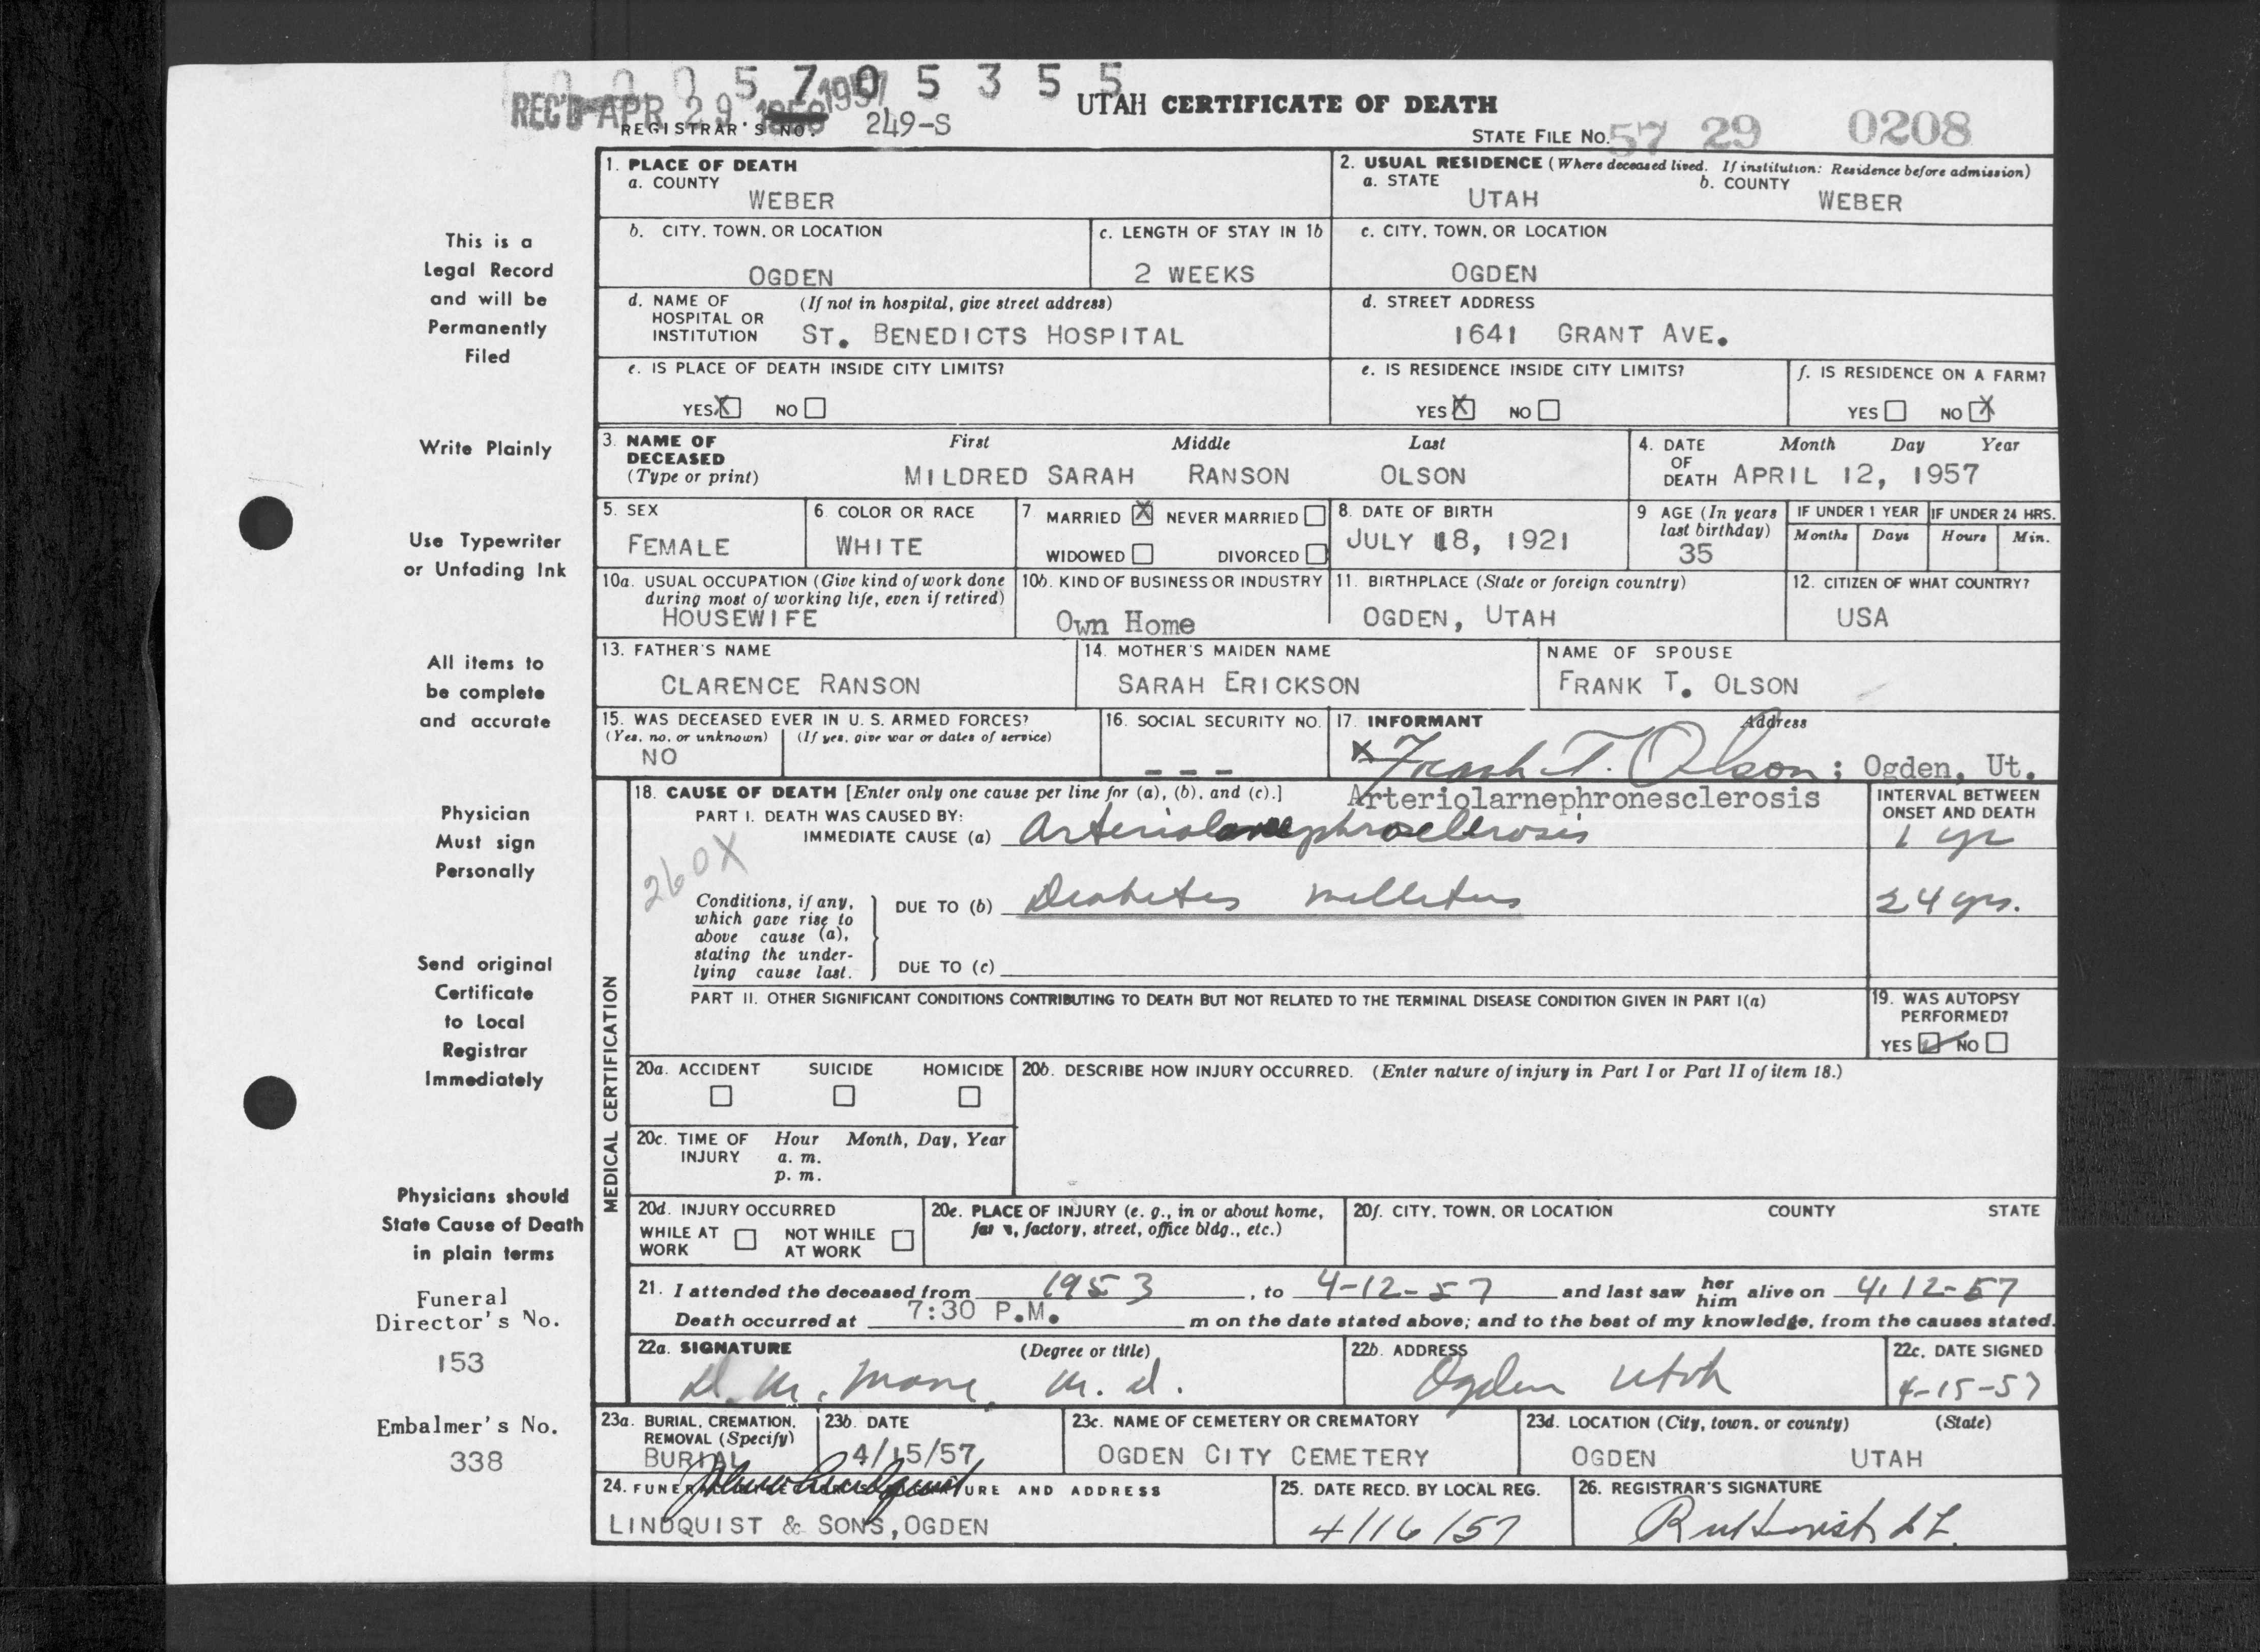 0 0 0 5 7 0 5 3 5 5
REC'D APR 29 1957
UTAH CERTIFICATE OF DEATH
REGISTRAR'S NO. 249-S
STATE FILE NO. 57 29 0208
This is a
Legal Record
and will be
Permanently
Filed
Write Plainly
Use Typewriter
or Unfading Ink
All items to
be complete
and accurate
Physician
Must sign
Personally
Send original
Certificate
to Local
Registrar
Immediately
Physicians should
State Cause of Death
in plain terms
Funeral
Director's No.
153
Embalmer's No.
338
1. PLACE OF DEATH
a. COUNTY
WEBER
2. USUAL RESIDENCE (Where deceased lived. If institution: Residence before admission)
a. STATE b. COUNTY
UTAH WEBER
b. CITY, TOWN, OR LOCATION
OGDEN
c. LENGTH OF STAY IN 1b
2 WEEKS
c. CITY, TOWN, OR LOCATION
OGDEN
d. NAME OF (If not in hospital, give street address)
HOSPITAL OR
INSTITUTION ST. BENEDICTS HOSPITAL
d. STREET ADDRESS
1641 GRANT AVE.
e. IS PLACE OF DEATH INSIDE CITY LIMITS?
YES X NO
e. IS RESIDENCE INSIDE CITY LIMITS?
YES X NO
f. IS RESIDENCE ON A FARM?
YES NO X
3. NAME OF First Middle Last
DECEASED
(Type or print) MILDRED SARAH RANSON OLSON
4. DATE Month Day Year
OF
DEATH APRIL 12, 1957
5. SEX
FEMALE
6. COLOR OR RACE
WHITE
7. MARRIED X NEVER MARRIED
WIDOWED DIVORCED
8. DATE OF BIRTH
JULY 18, 1921
9 AGE (In years
last birthday)
35
IF UNDER 1 YEAR IF UNDER 24 HRS.
Months Days Hours Min.
10a. USUAL OCCUPATION (Give kind of work done
during most of working life, even if retired)
HOUSEWIFE
10b. KIND OF BUSINESS OR INDUSTRY
Own Home
11. BIRTHPLACE (State or foreign country)
OGDEN, UTAH
12. CITIZEN OF WHAT COUNTRY?
USA
13. FATHER'S NAME
CLARENCE RANSON
14. MOTHER'S MAIDEN NAME
SARAH ERICKSON
NAME OF SPOUSE
FRANK T. OLSON
15. WAS DECEASED EVER IN U. S. ARMED FORCES?
(Yes, no, or unknown) (If yes, give war or dates of service)
NO
16. SOCIAL SECURITY NO.
- - -
17. INFORMANT Address
x Frank T. Olson; Ogden, Ut.
MEDICAL CERTIFICATION
18. CAUSE OF DEATH [Enter only one cause per line for (a), (b), and (c).]
Arteriolarnephronesclerosis
PART I. DEATH WAS CAUSED BY:
IMMEDIATE CAUSE (a) Arteriolarnephrosclerosis
INTERVAL BETWEEN
ONSET AND DEATH
1 yr
260X
Conditions, if any,
which gave rise to
above cause (a),
stating the under-
lying cause last.
DUE TO (b) Diabetes mellitus
24 yrs.
DUE TO (c)
PART II. OTHER SIGNIFICANT CONDITIONS CONTRIBUTING TO DEATH BUT NOT RELATED TO THE TERMINAL DISEASE CONDITION GIVEN IN PART I(a)
19. WAS AUTOPSY
PERFORMED?
YES ✓ NO
20a. ACCIDENT SUICIDE HOMICIDE
20b. DESCRIBE HOW INJURY OCCURRED. (Enter nature of injury in Part I or Part II of item 18.)
20c. TIME OF Hour Month, Day, Year
INJURY a. m.
p. m.
20d. INJURY OCCURRED
WHILE AT NOT WHILE
WORK AT WORK
20e. PLACE OF INJURY (e. g., in or about home,
farm, factory, street, office bldg., etc.)
20f. CITY, TOWN, OR LOCATION COUNTY STATE
21. I attended the deceased from 1953, to 4-12-57 and last saw her him alive on 4-12-57
Death occurred at 7:30 P.M. m on the date stated above; and to the best of my knowledge, from the causes stated.
22a. SIGNATURE (Degree or title)
M. D.
22b. ADDRESS
Ogden Utah
22c. DATE SIGNED
4-15-57
23a. BURIAL, CREMATION,
REMOVAL (Specify)
BURIAL
23b. DATE
4/15/57
23c. NAME OF CEMETERY OR CREMATORY
OGDEN CITY CEMETERY
23d. LOCATION (City, town, or county) (State)
OGDEN UTAH
24. FUNERAL DIRECTOR'S SIGNATURE AND ADDRESS
LINDQUIST & SONS, OGDEN
25. DATE RECD. BY LOCAL REG.
4/16/57
26. REGISTRAR'S SIGNATURE